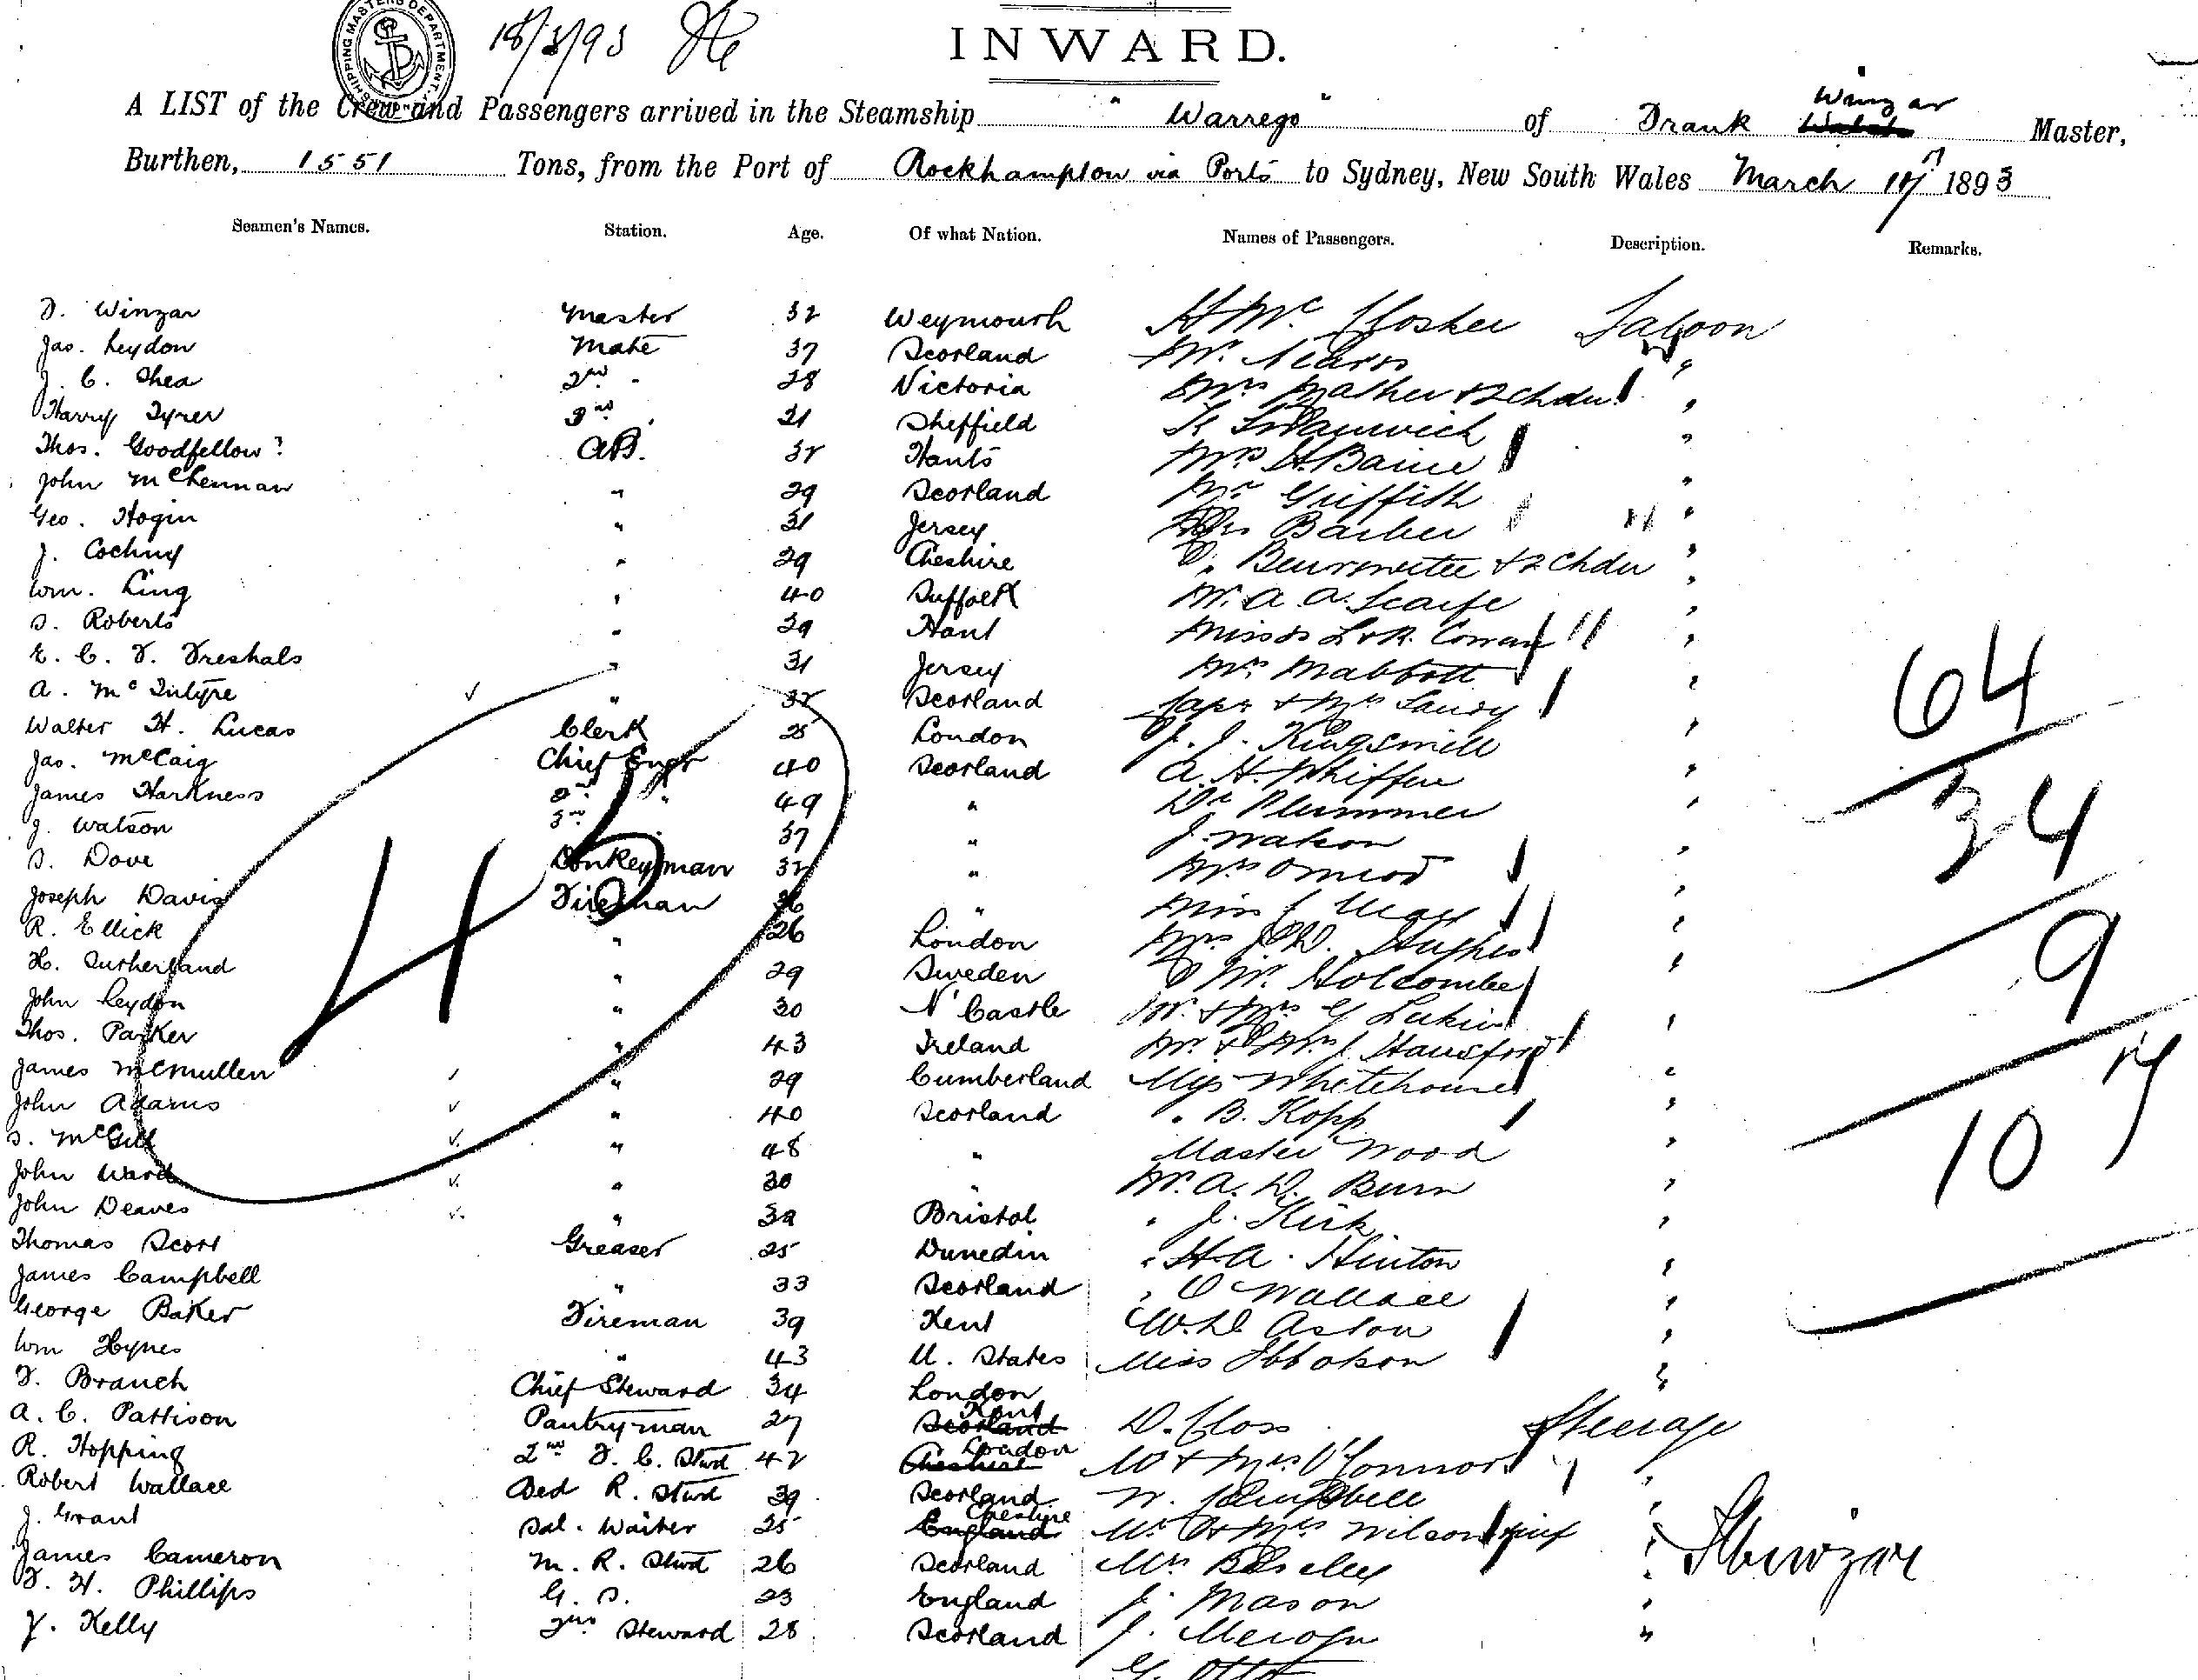 SHIPPING MASTERS DEPARTMENT
18/3/93
INWARD.
A LIST of the Crew and Passengers arrived in the Steamship "Warrego" of Frank Winzar Master,
Burthen, 1551 Tons, from the Port of Rockhampton via Ports to Sydney, New South Wales March 1893
Seamen's Names. Station. Age. Of what Nation. Names of Passengers. Description. Remarks.
F. Winzar Master 32 Weymouth Saloon
Jas. Leydon Mate 37 Scotland Mr.
J. C. Shea 2nd " 28 Victoria Mrs Mather + 2 Chdn "
Harry Tyrer 3rd " 21 Sheffield "
Thos. Goodfellow AB. 32 Hants Mrs H. Baine "
John McLennan " 29 Scotland Mr Griffith "
Geo. Hogin " 31 Jersey Mrs Barber "
J. Cochny " 29 Cheshire + 2 Chdn "
Wm. Ling " 40 Suffolk Mr. A. A. Scarfe "
S. Roberts " 29 Hant Misses L + R. Cowan "
E. C. F. " 31 Jersey Mrs Mabbott "
A. McIntyre " 32 Scotland Capn + Mrs "
Walter H. Lucas Clerk 25 London J. J. Kingsmill "
Jas. McCaig Chief Engr 40 Scotland A. H. Whiffen "
James Harkness 2nd " 49 " Dr Plummer "
J. Watson 3rd 37 " J. Watson "
S. Dove Donkeyman 32 " Mrs Ormiod "
Joseph Davis Fireman 36 " Miss "
R. Ellick " 26 London Mrs Hughes "
H. Sutherland " 29 Sweden Mr. Holcombe "
John Leydon " 30 N'Castle Mr. + Mrs G Lukin "
Thos. Parker " 43 Ireland Mr. + Mrs J. Hansford "
James McMullen " 29 Cumberland Whitehouse "
John Adams " 40 Scotland " B. Kopp "
S. McGill " 48 " Master Wood "
John Ward " 30 " Mr. A. D. Burn "
John Deaves " 32 Bristol " J. Kirk "
Thomas Scott Greaser 25 Dunedin " H. A. Hinton "
James Campbell " 33 Scotland " O Wallace "
George Baker Fireman 39 Kent W. D. Aston "
Wm Hynes " 43 U. States Miss Ibbotson "
F. Branch Chief Steward 34 London
A. C. Pattison Pantryman 27 Kent D. Closs Steerage
R. Hopping 2nd F. C. Stwd 42 London Mr + Mrs O'Connor "
Robert Wallace Bed R. Stwd 39 Scotland W. Campbell "
J. Grant Sal. Waiter 25 Cheshire Mr + Mrs Wilson "
James Cameron M. R. Stwd 26 Scotland Mrs "
F. H. Phillips G. S. 23 England J. Mason "
J. Kelly 2nd Steward 28 Scotland J. "
G. Otto
45
64
34
9
107